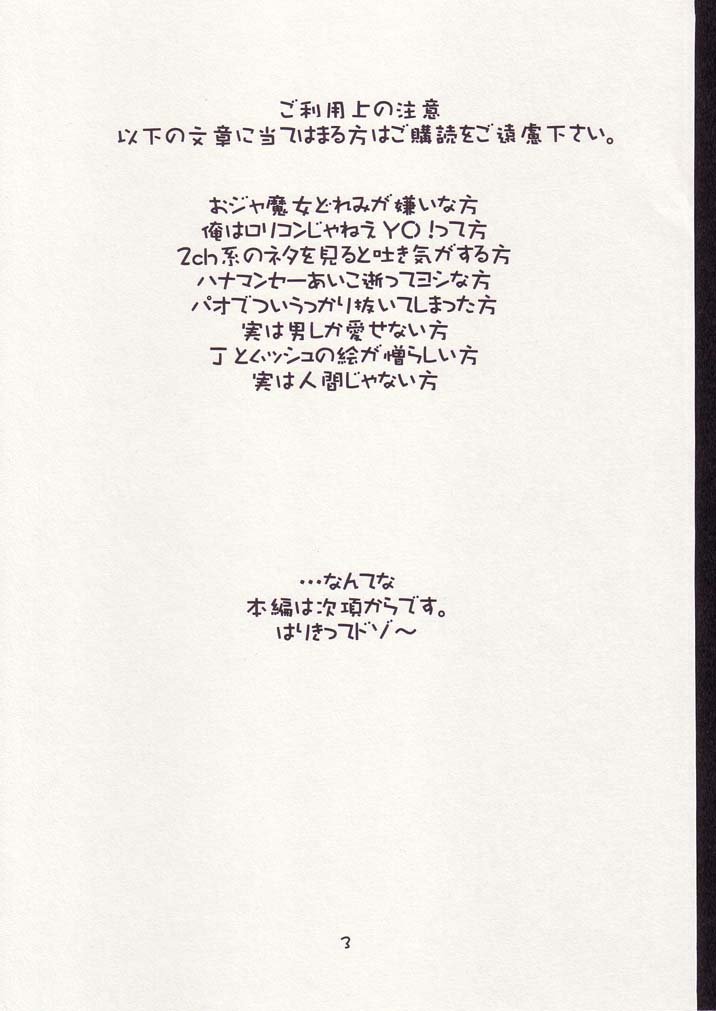 ご利用上の注意
以下の文章に当てはまる方はご購読をご遠慮下さい。
おジャ魔女どれみが嫌いな方
俺はロリコンじゃねえYO!って方
2ch系のネタを見ると吐き気がする方
ハナマンセーあいこ逝ってヨシな方
パオでついうっかり抜いてしまった方
実は男しか愛せない方
丁とムッシュの絵が憎らしい方
実は人間じゃない方
…なんてな
本編は次項からです。
はりきってドゾ～
3